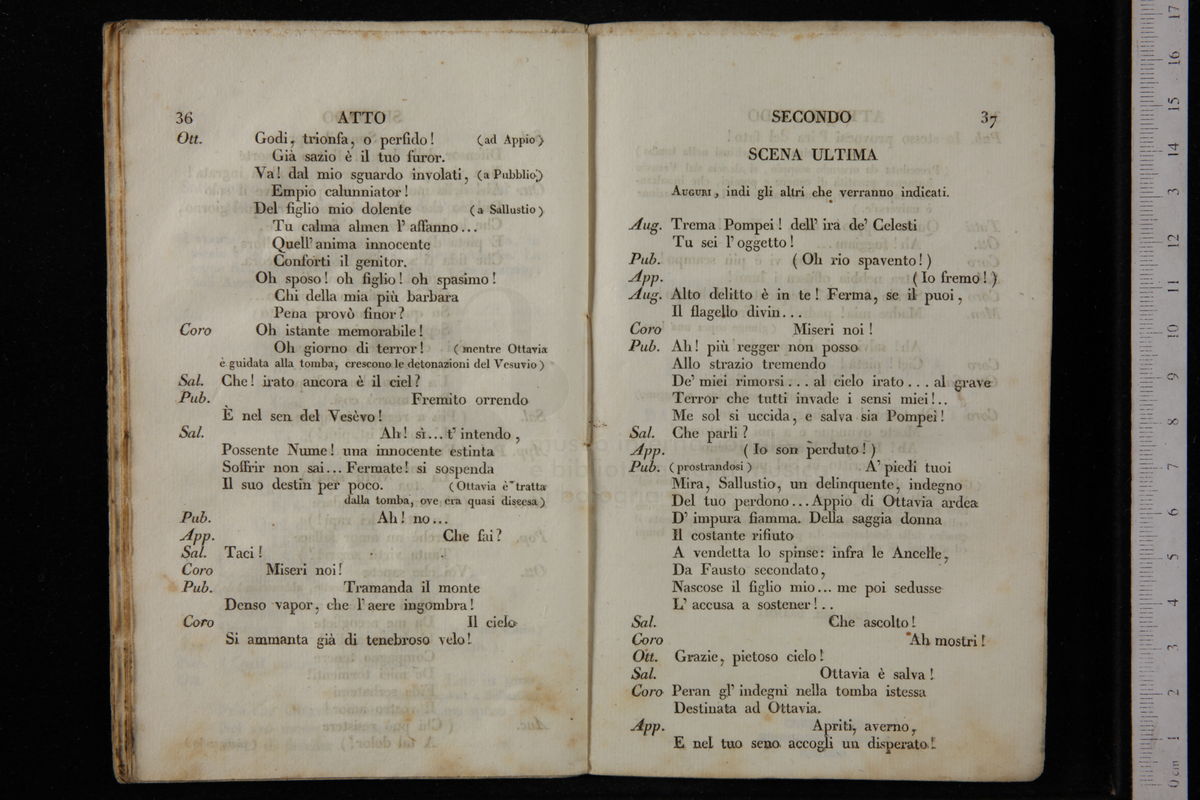 36 ATTO
Ott. Godi, trionfa, o perfido! (ad Appio)
Già sazio è il tuo furor.
Va! dal mio sguardo involati, (a Pubblio)
Empio calunniator!
Del figlio mio dolente (a Sallustio)
Tu calma almen l' affanno...
Quell' anima innocente
Conforti il genitor.
Oh sposo! oh figlio! oh spasimo!
Chi della mia più barbara
Pena provò finor?
Coro Oh istante memorabile!
Oh giorno di terror! (mentre Ottavia
è guidata alla tomba, crescono le detonazioni del Vesuvio)
Sal. Che! irato ancora è il ciel?
Pub. Fremito orrendo
È nel sen del Vesèvo!
Sal. Ah! sì... t' intendo,
Possente Nume! una innocente estinta
Soffrir non sai... Fermate! si sospenda
Il suo destin per poco. (Ottavia è tratta
dalla tomba, ove era quasi discesa)
Pub. Ah! no...
App. Che fai?
Sal. Taci!
Coro Miseri noi!
Pub. Tramanda il monte
Denso vapor, che l' aere ingombra!
Coro Il cielo
Si ammanta già di tenebroso velo!
SECONDO 37
SCENA ULTIMA
AUGURI, indi gli altri che verranno indicati.
Aug. Trema Pompei! dell' ira de' Celesti
Tu sei l' oggetto!
Pub. (Oh rio spavento!)
App. (Io fremo!)
Aug. Alto delitto è in te! Ferma, se il puoi,
Il flagello divin...
Coro Miseri noi!
Pub. Ah! più regger non posso
Allo strazio tremendo
De' miei rimorsi... al cielo irato... al grave
Terror che tutti invade i sensi miei!..
Me sol si uccida, e salva sia Pompei!
Sal. Che parli?
App. (Io son perduto!)
Pub. (prostrandosi) A' piedi tuoi
Mira, Sallustio, un delinquente, indegno
Del tuo perdono... Appio di Ottavia ardea
D' impura fiamma. Della saggia donna
Il costante rifiuto
A vendetta lo spinse: infra le Ancelle,
Da Fausto secondato,
Nascose il figlio mio... me poi sedusse
L' accusa a sostener!..
Sal. Che ascolto!
Coro Ah mostri!
Ott. Grazie, pietoso cielo!
Sal. Ottavia è salva!
Coro Peran gl' indegni nella tomba istessa
Destinata ad Ottavia.
App. Apriti, averno,
E nel tuo seno accogli un disperato!